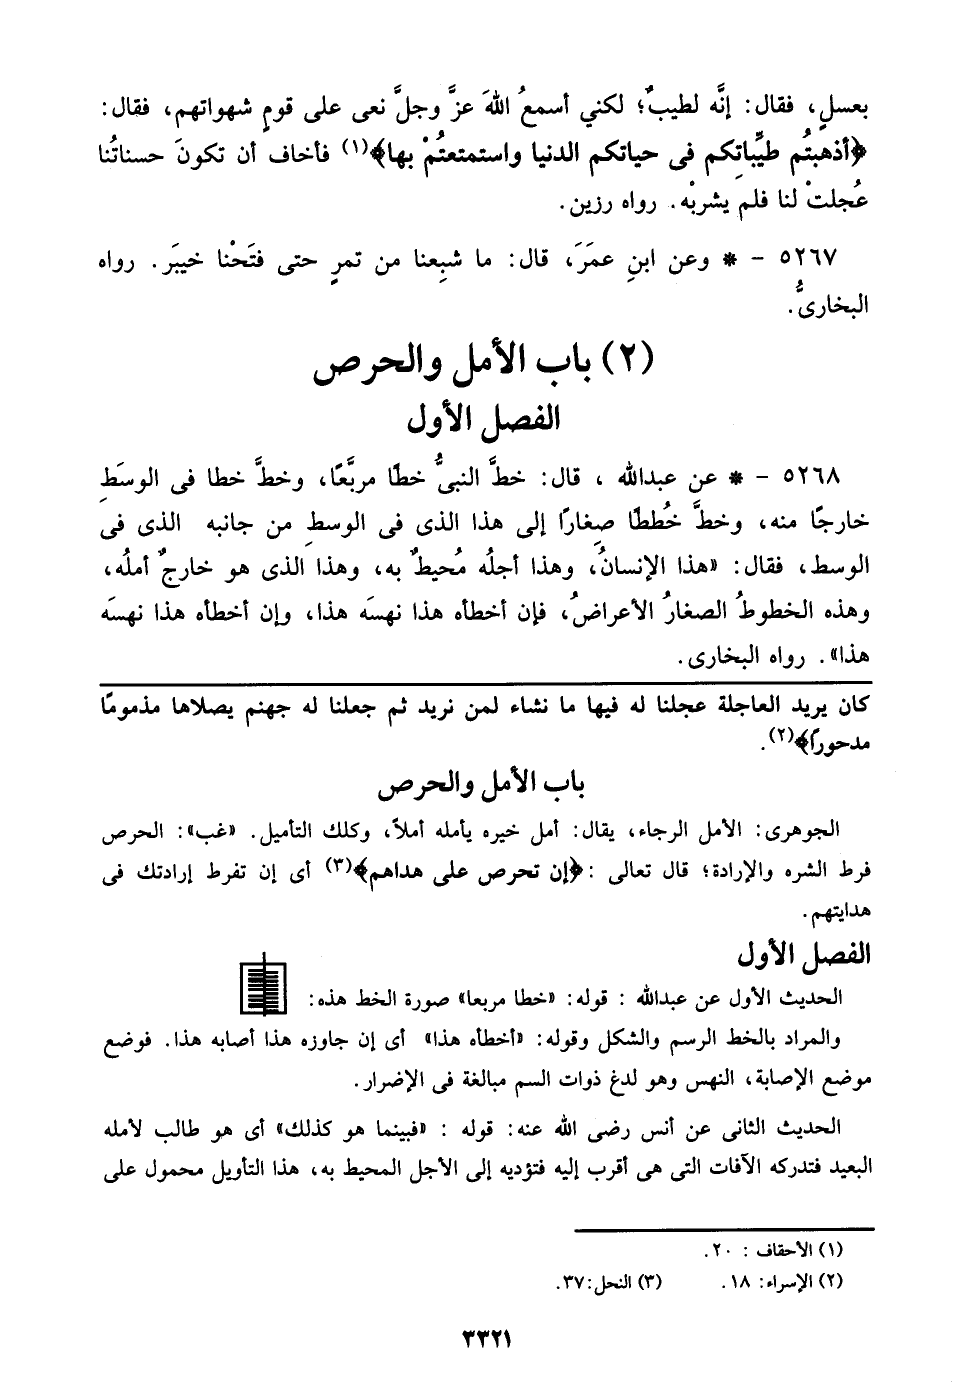 بعسلٍ، فقال: إنَّه لطيبٌ؛ لكني أسمعُ اللهَ عزَّ وجلَّ نعى على قومٍ شهواتهم، فقال:
﴿أذهبتُم طيِّباتِكم فى حياتكم الدنيا واستمتعتُمْ بها﴾(١) فأخاف أن تكونَ حسناتُنا
عُجلتْ لنا فلم يشربْه. رواه رزين.
٥٢٦٧ – * وعن ابنِ عمَرَ، قال: ما شبِعنا من تمرٍ حتى فتَحْنا خيبَر. رواه
البخارىُّ.
(٢) باب الأمل والحرص
الفصل الأول
٥٢٦٨ – * عن عبدالله ، قال: خطَّ النبىُّ خطًا مربَّعًا، وخطَّ خطا فى الوسَطِ
خارجًا منه، وخطَّ خُططًا صِغارًا إلى هذا الذى فى الوسطِ من جانبه الذى فى
الوسط، فقال: «هذا الإنسانُ، وهذا أجلُه مُحيطٌ به، وهذا الذى هو خارجٌ أملُه،
وهذه الخطوطُ الصغارُ الأعراضُ، فإن أخطأه هذا نهسَه هذا، وإن أخطأه هذا نهسَه
هذا». رواه البخارى.
كان يريد العاجلة عجلنا له فيها ما نشاء لمن نريد ثم جعلنا له جهنم يصلاها مذمومًا
مدحورًا﴾(٢).
باب الأمل والحرص
الجوهرى: الأمل الرجاء، يقال: أمل خيره يأمله أملاً، وكلك التأميل. «غب»: الحرص
فرط الشره والإرادة؛ قال تعالى :﴿إن تحرص على هداهم﴾(٣) أى إن تفرط إرادتك فى
هدايتهم.
الفصل الأول
الحديث الأول عن عبدالله : قوله: «خطا مربعا» صورة الخط هذه:
والمراد بالخط الرسم والشكل وقوله: «أخطأه هذا» أى إن جاوزه هذا أصابه هذا. فوضع
موضع الإصابة، النهس وهو لدغ ذوات السم مبالغة فى الإضرار.
الحديث الثانى عن أنس رضى الله عنه: قوله : «فبينما هو كذلك» أى هو طالب لأمله
البعيد فتدركه الآفات التى هى أقرب إليه فتؤديه إلى الأجل المحيط به، هذا التأويل محمول على
(١) الأحقاف : ٢٠.
(٢) الإسراء: ١٨. (٣) النحل:٣٧.
٣٣٢١